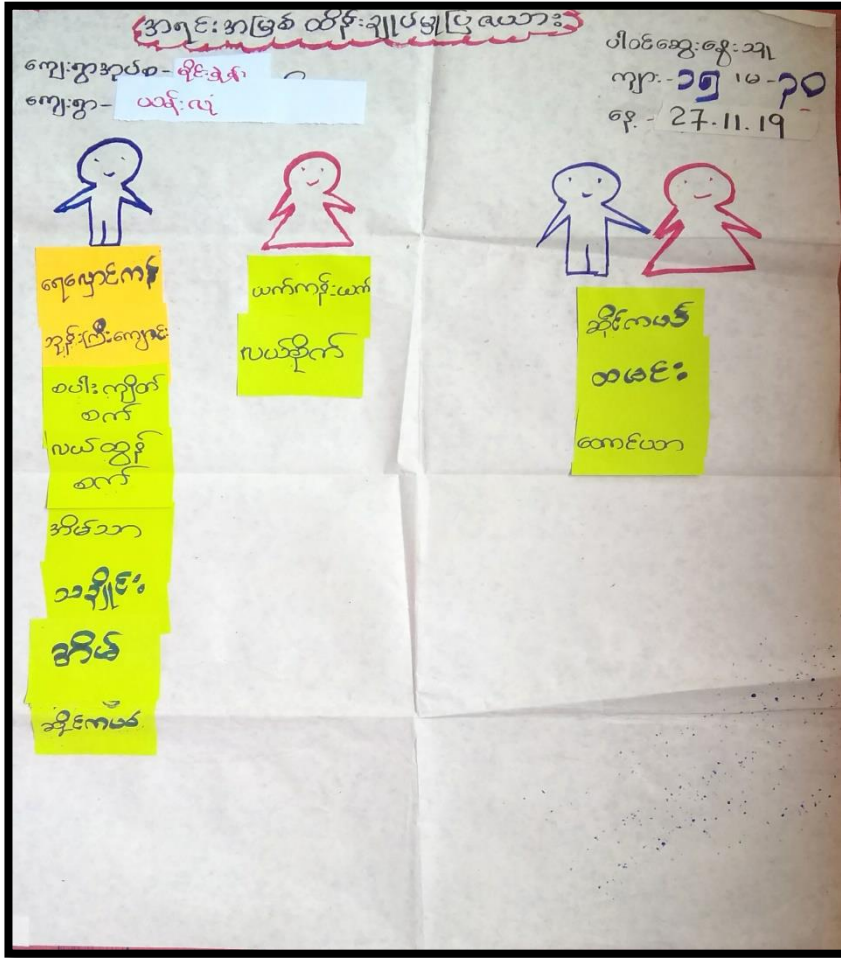 အရင်းအမြစ် ထိန်းချုပ်မှုပြဇယား
ကျေးရွာအုပ်စု -
ကျေးရွာ - ယန်းလုံ
ပါဝင်ဆွေးနွေးသူ
ကျား - ၁၅ ၊ မ - ၃၀
နေ့ - 27.11.19
ရေလှောင်ကန်
ဘုန်းကြီးကျောင်း
စပါးကျိတ်
စက်
လယ်ထွန်
စက်
အိမ်သာ
သချိုင်း
အိမ်
ဆိုင်ကယ်
ယက်ကန်းယက်
လယ်စိုက်
ဆိုင်ကယ်
ထမင်း
တောင်ယာ